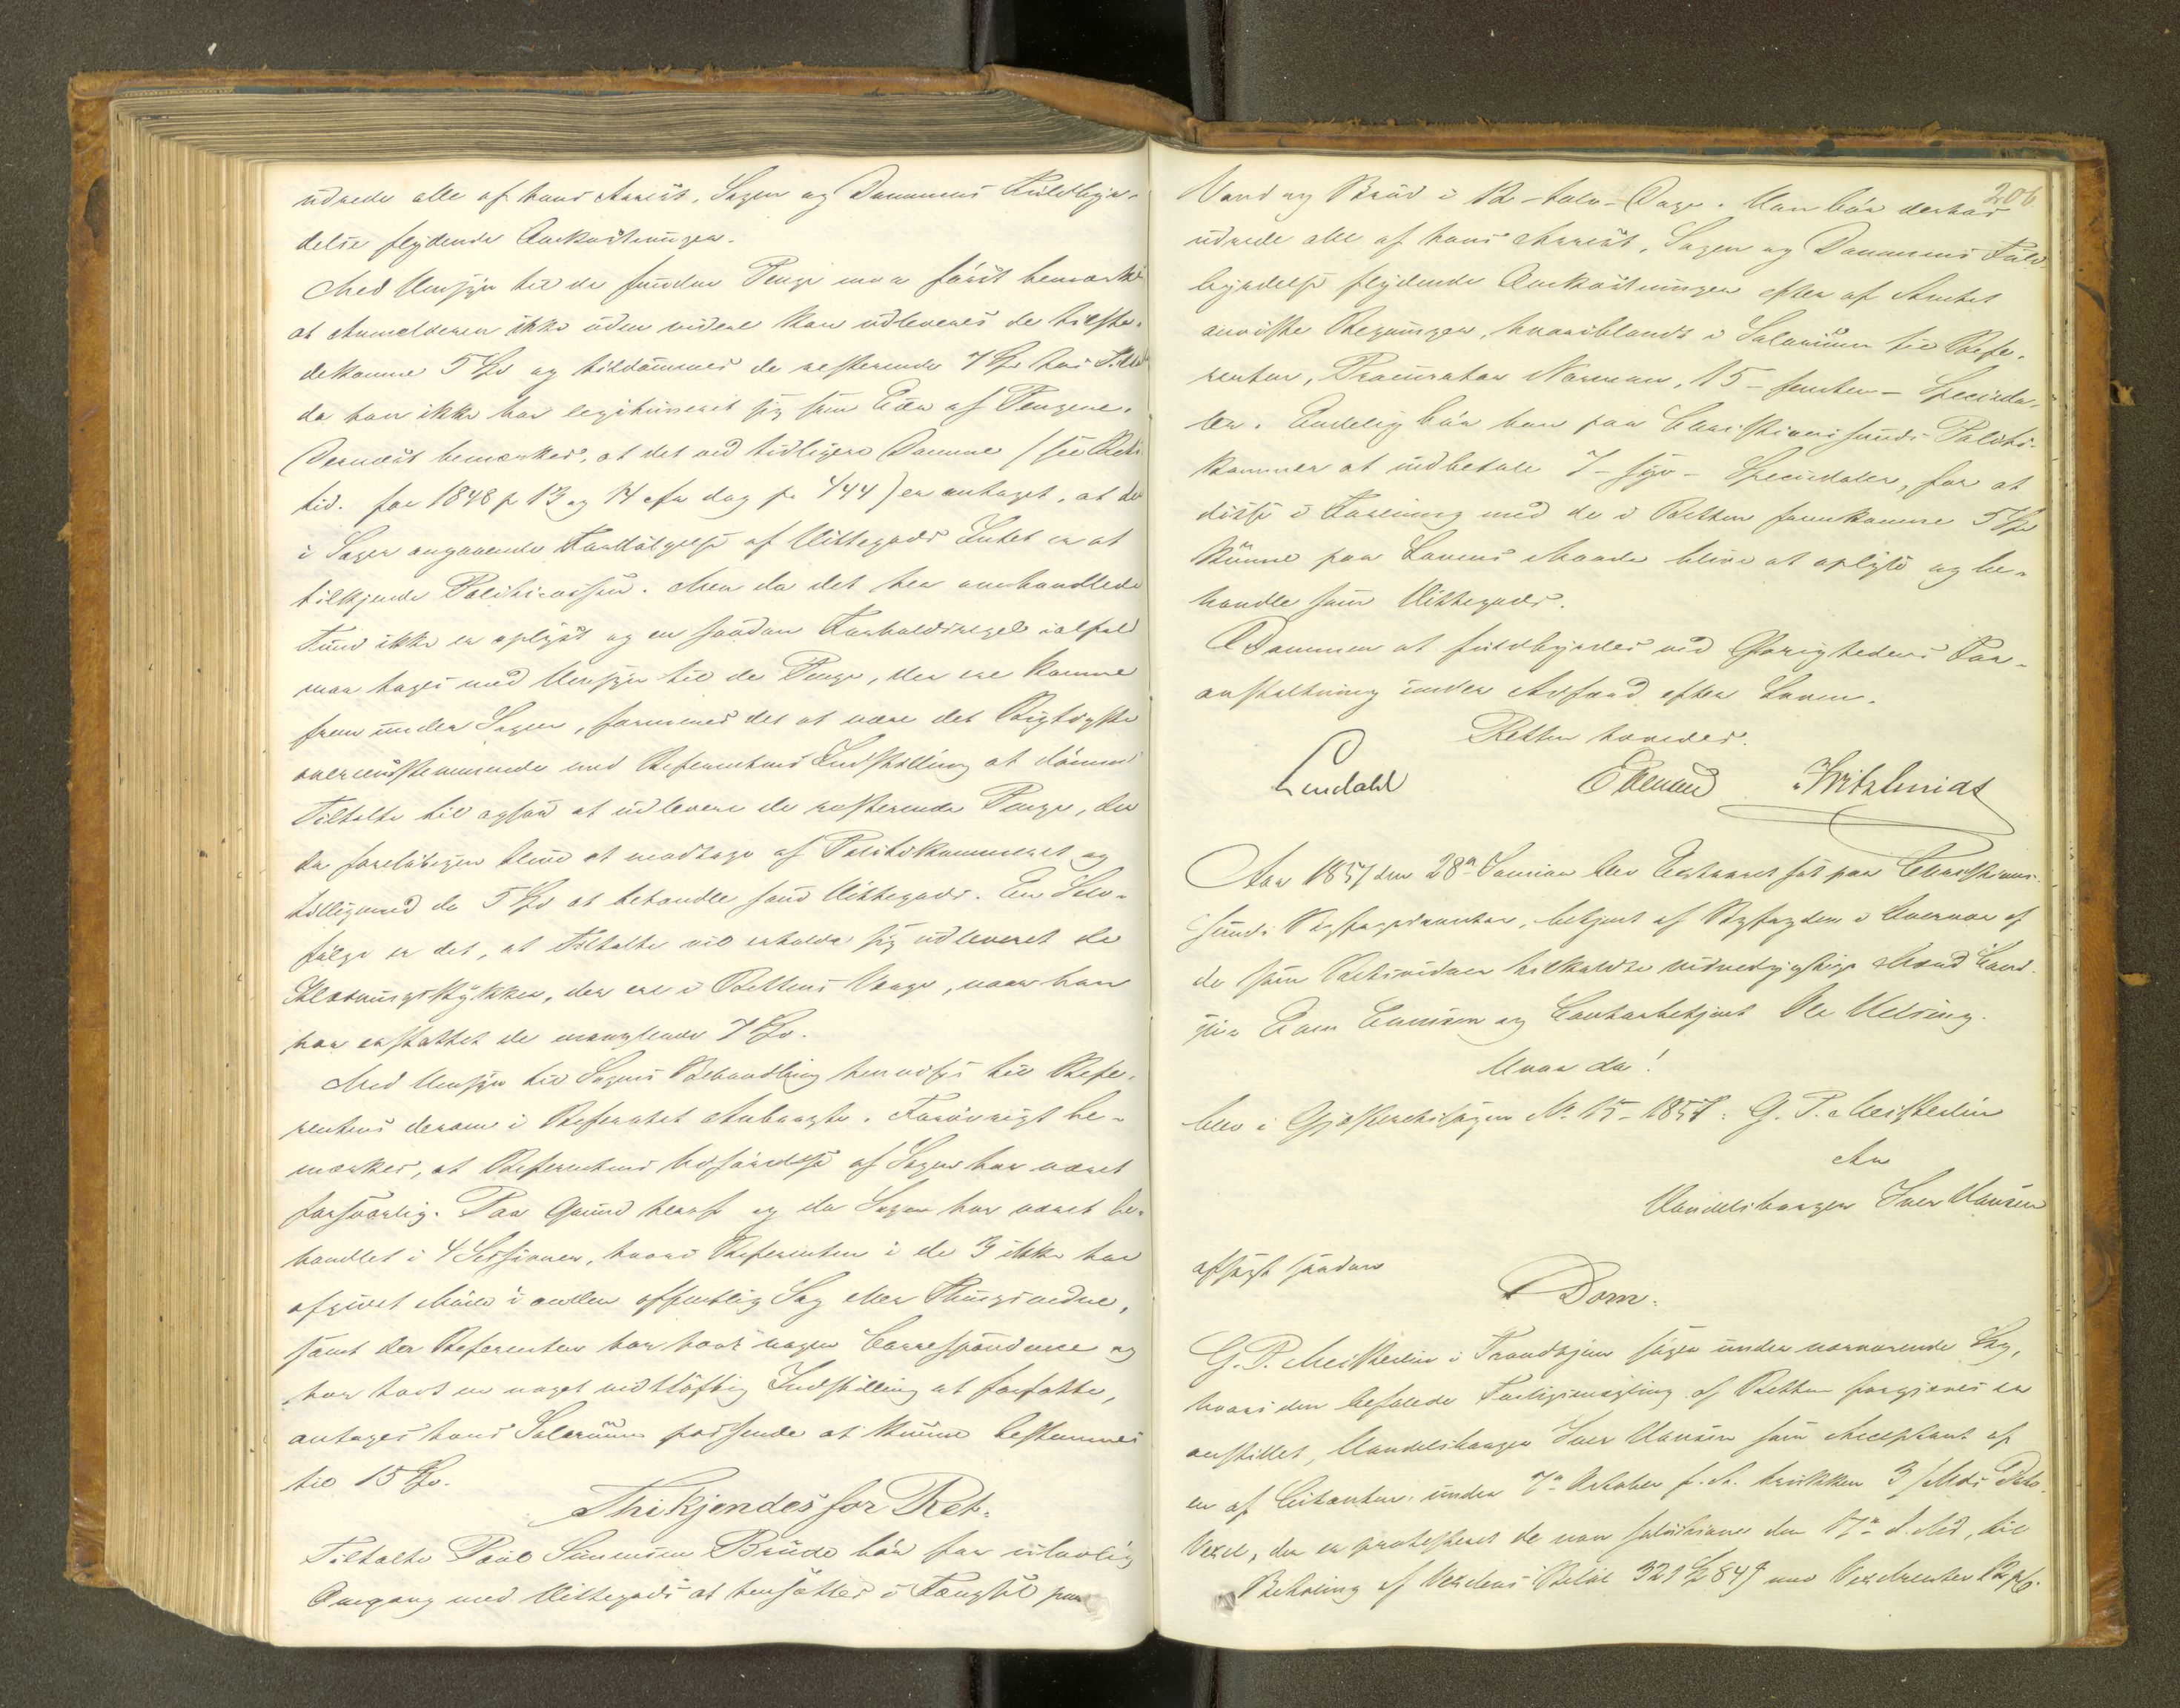 udrede alle af hans Arrest, Sagen og Dommens Fuldbyr-
delse flydende Omkostninger.
Med Hensyn til de fundne Penge maa først bemærkes
at Anmelderen ikke uden videre kan udleveres de tilste-
dekomne 5 Spd og tildømmes de resterende 7 Spd hos Tiltalte
da han ikke har legitimeret sig som Eier af Pengene.
Dernæst bemærkes, at det ved tidligere Domme (see Rets
tid. for 1848 p 13 og 14 ofr dog p. 444) er antaget, at der
i Sager angaaende Fordølgelse af Hittegods Intet er at
tilkjende Politicassen. Men da det her omhandlede
Fund ikke er oplyst og en saadan Forholdsregel ialfald
maa tages med Hensyn til de Penge, der ere komne
frem under Sagen, formenes det at være det Rigtigste
overeensstemmende med Referentens Indstilling at dømme
Tiltalte til ogsaa at udlevere de resterende Penge, der
da foreløbigen blive at modtage af Politikammeret og
tilligemed de 5 Spd at behandle som Hittegods. En Selv-
følge er det, at Tiltalte vil erholde sig udleveret de
Klædningsstykker, der ere i Rettens Værge, naar han
har erstattet de manglende 7 Spd.
Med Hensyn til Sagens Behandling henvises til Refe-
rentens derom i Referatet Anbragte. Forøvrigt be-
mærkes, at Referentens Udførelse af Sagen har været
forsvarlig. Paa Grund heraf og da Sagen har været be-
handlet i 4 Sessioner, hvori Referenten i de 3 ikke har
afgivet Møde i anden offentlig Sag eller Thingsvidne,
samt da Referenten har havt nogen Correspondence og
har havt en noget vidtløftig Indstilling at forfatte,
antages hans Salarium passende at kunne bestemmes
til 15 Spd.
Thi kjendes for Ret.
Tiltalte Poul Simensen Brude bør for ulovlig
Omgang med Hittegods at hensættes i Fængsel paa
206
Vand og Brød i 12 - tolv - Dage. Han bør derhos
udrede alle af hans Arrest, Sagen og Dommens Fuld-
byrdelse flydende Omkostninger efter af Amtet
anviste Regninger, hvoriblandt i Salarium til Refe-
renten, Procurator Norman, 15 - femten - Speciedo-
ler. Endelig bør han paa Christianssunds Politi-
kammer at indbetale 7 - syv - Speciedaler, for at
disse i Forening med de i Retten fremkomne 5 Spd
kunne paa Lovens Maade blive at oplyse og be-
handle som Hittegods.
Dommen at fuldbyrdes ved Øvrighedens For-
anstaltning under Adfærd efter Loven.
Retten hævedes.
Lindahl
Aar 1857 den 28de Januar blev Extraret sat paa Christians-
sunds Byfogedcontor, betjent af Byfogden i Overvær af
de som Retsvidner tilkaldte vidnedygtige Mænd Cand.
jur. og Contorbetjent Ole
Hvor da!
blev i Gjæsteretssagen No 15 - 1857: G. P. Meisterlin
Mod
Handelsborger Iver Hansen
afsagt saadan
Dom.
G. P. Meisterlin i Trondhjem søger under nærværende Sag,
hvori den befalede Forligsmægling af Retten forgjeves er
anstillet, Handelsborger Iver Hansen som Acceptant af
en af Citanten under 7de October f. A. trukken 3 Mds Dato
Vexel, der er protesteret de non solutione den 17de d. Md, til
Betaling af Vexlens Beløb 321 Spd 84 ß med Vexelrenter